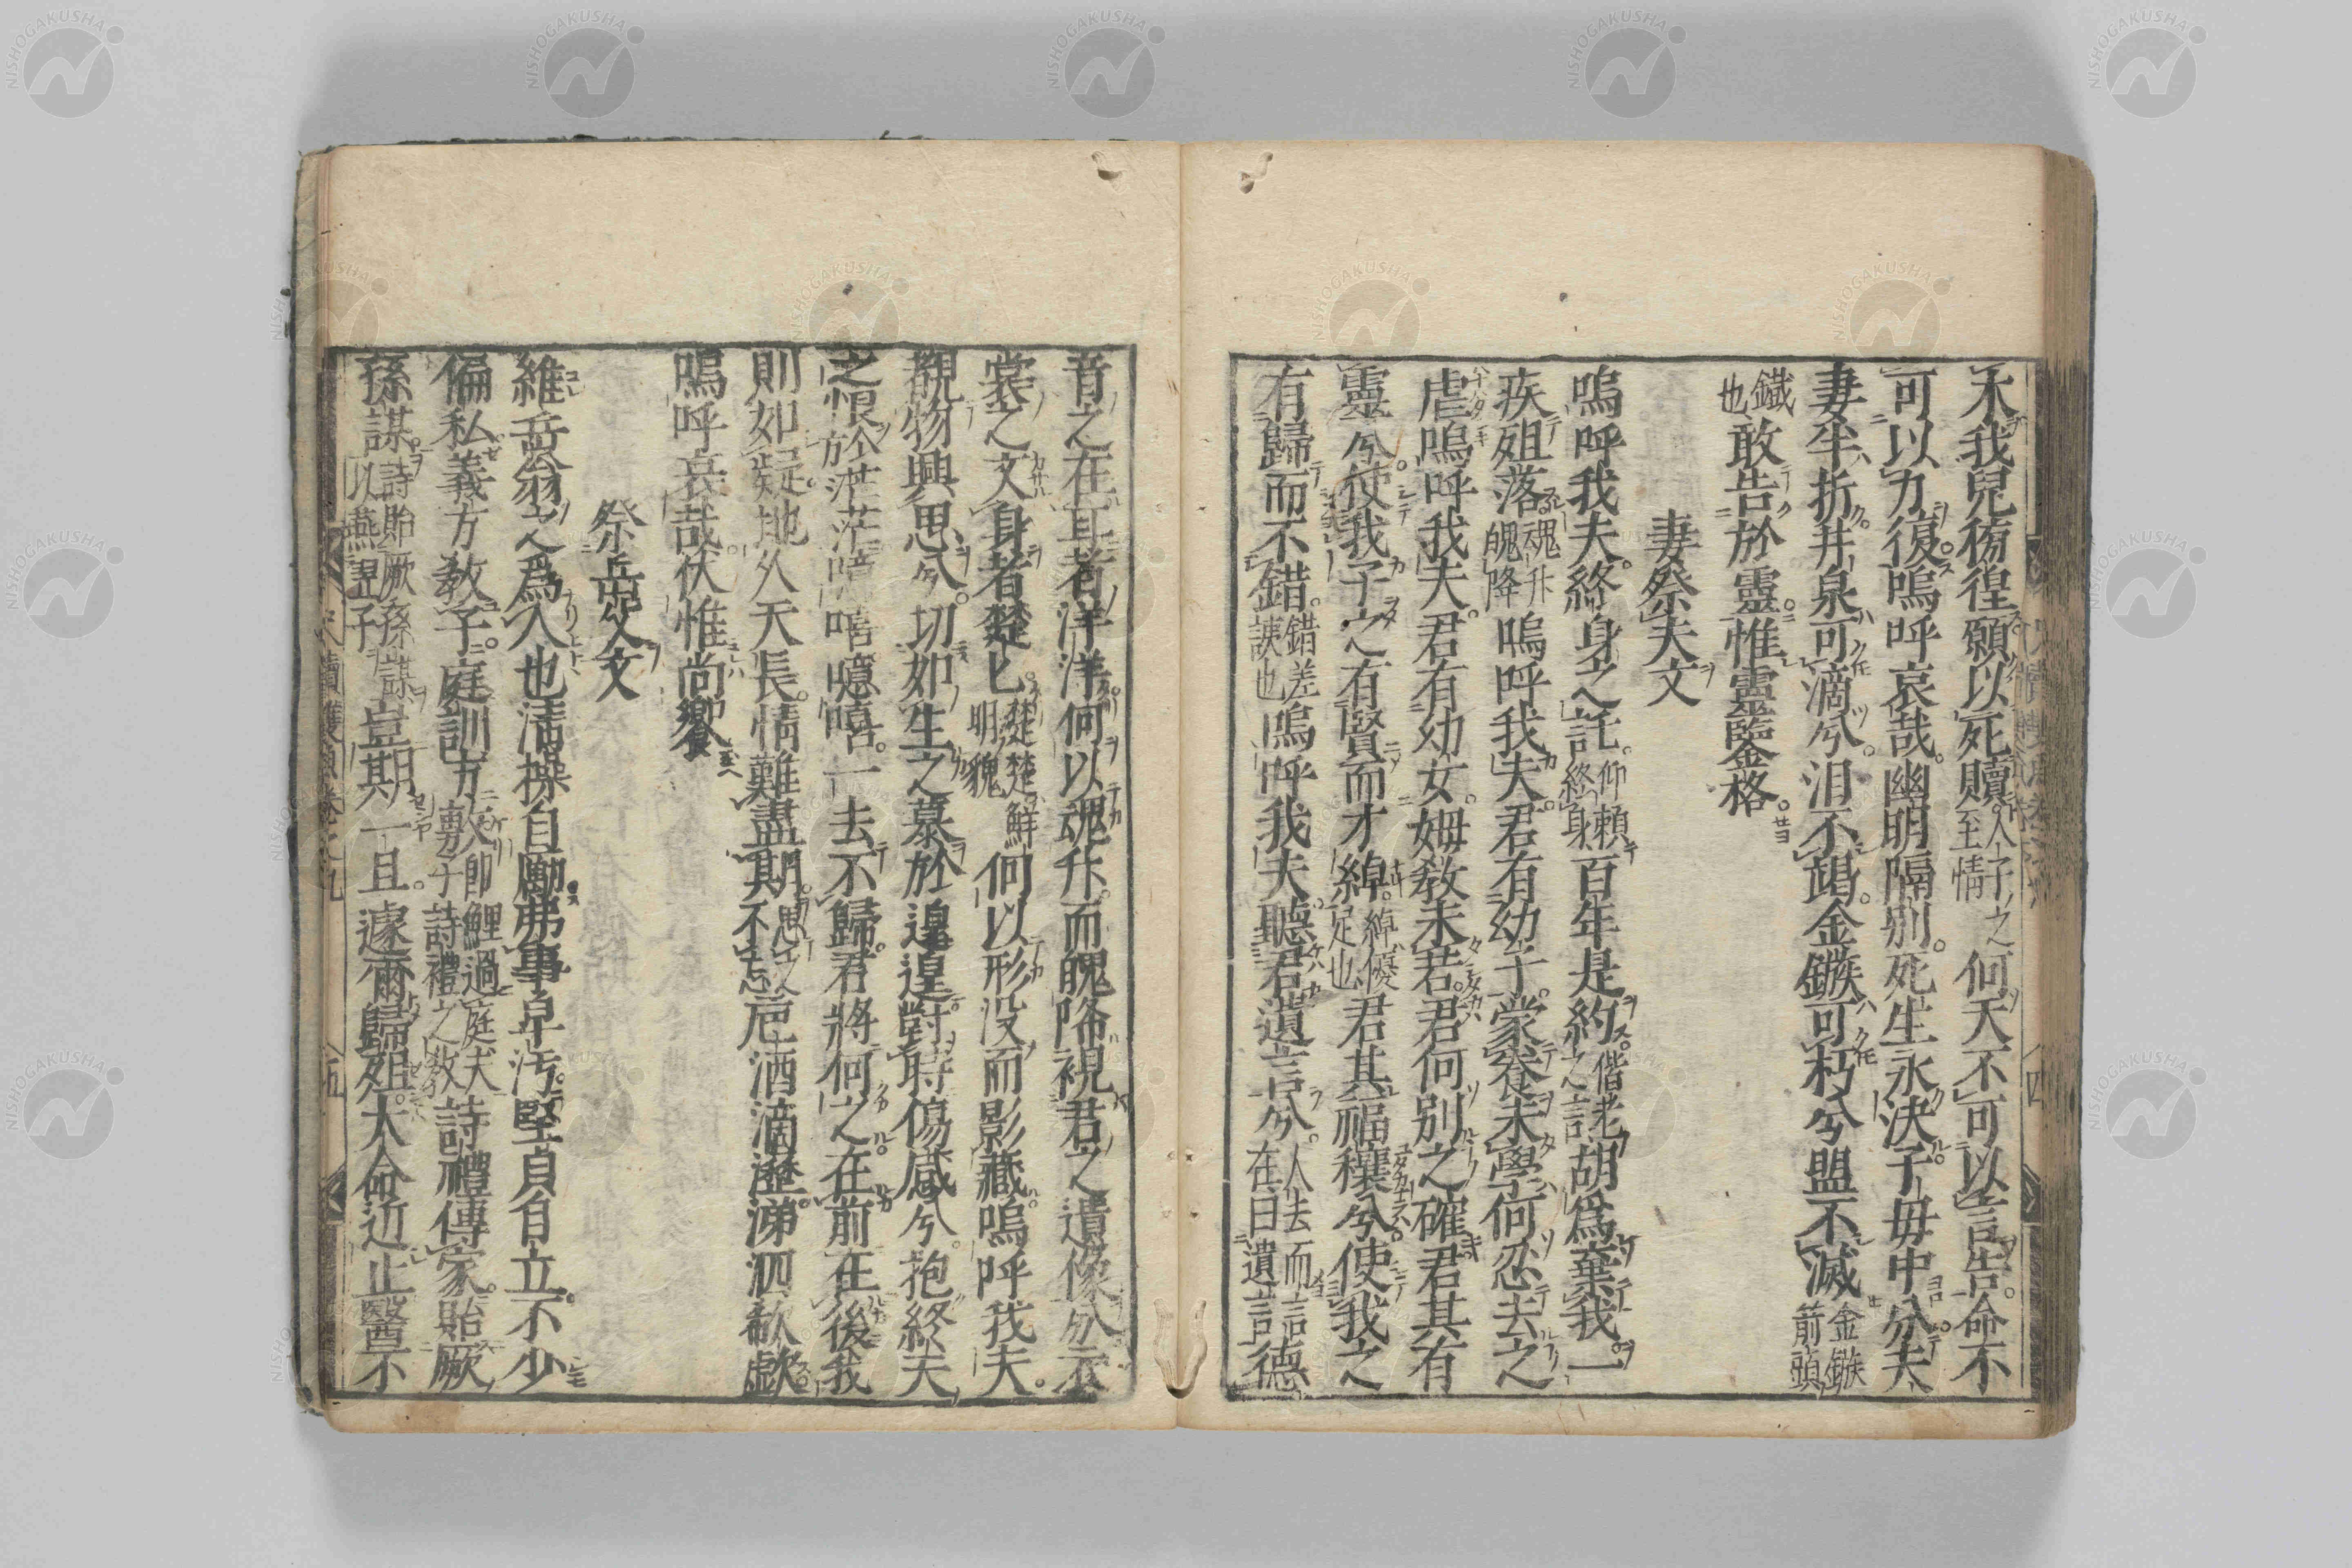 禾我兒徬徨願以死贖人子之至情何天不可以言告命不
可以力復嗚呼哀哉幽明隔别死生永決子母中分夫
妻半折井泉可滴兮泪不竭金鏃可朽兮盟不滅金鏃箭頭
鐵也敢告於靈惟靈鑒格
妻祭夫文
嗚呼我夫終身之託仰賴終身百年是約偕老之言胡爲棄我一
疾殂落魂升魄降嗚呼我夫君有幼子蒙養未學何忍去之
虐嗚呼我夫君有幼女姆敎未若君何别之確君其有
靈兮使我子之有賢而才綽綽優足也君其福穰兮使我之
有歸而不錯錯差誤也嗚呼我夫聽君遺言兮人去而言在曰遺言德
音之在耳者洋洋何以魂升而魄降視君之遺像兮衣
裳之文身者楚匕楚楚鮮明貌何以形没而影藏嗚呼我夫
觀物興思兮切如生之慕於遑遑對時傷感兮抱終天
之恨於茫茫嘻噫嘻一去不歸君將何之在前在後我
則如疑地久天長情難盡期思之不忘巵酒滴瀝涕泗欷歔
嗚呼哀哉伏惟尚饗
祭岳父文
維岳翁之爲人也清操自勵弗事卑汚堅貞自立不少
偏私義方敎子庭訓方敷伯鯉過庭夫子詩禮之敎詩禮傳家貽厥
孫謀詩貽厥孫謀以燕翌子豈期一旦遽爾歸殂大命近止醫不